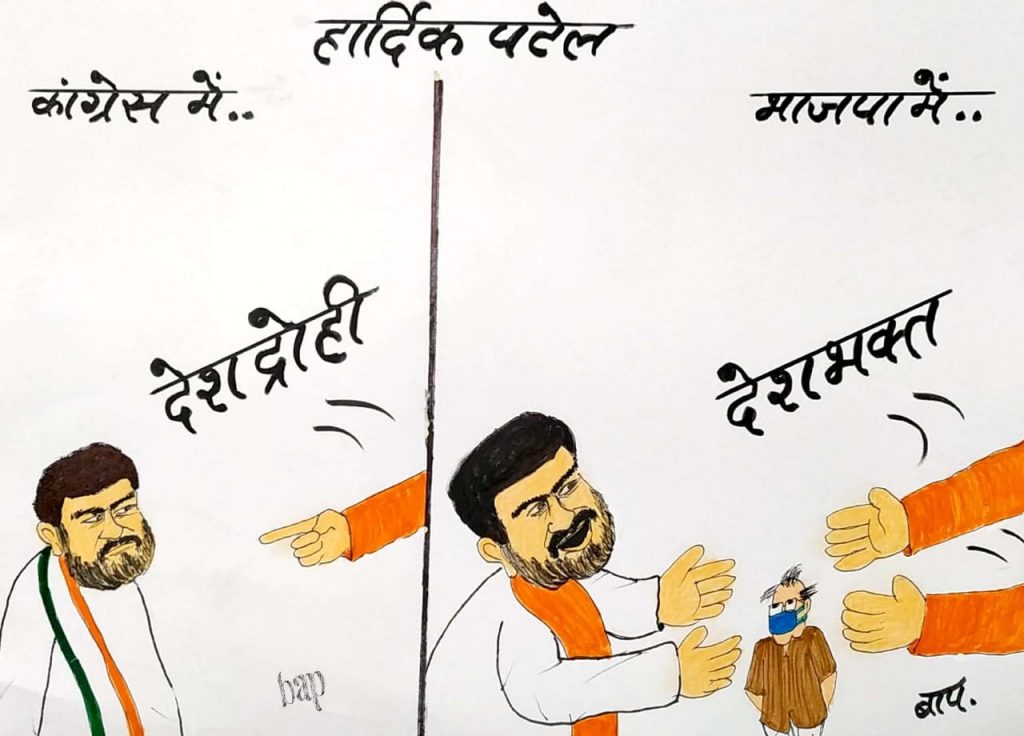 हार्दिक पटेल
कांग्रेस में..
भाजपा में..
देशद्रोही
देशभक्त
bap
बाप.